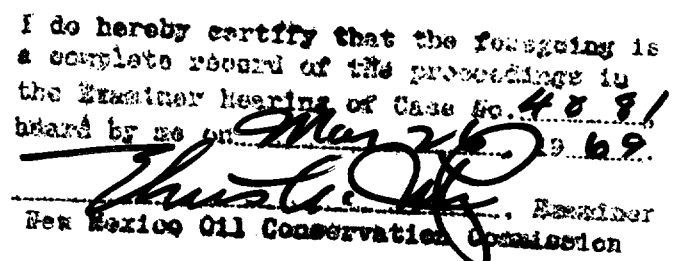 I do hereby certify that the foregoing is
a complete record of the proceedings in
the Examiner Hearing of Case No. 4081,
heard by me on Mar 26, 19 69.
, Examiner
New Mexico Oil Conservation Commission